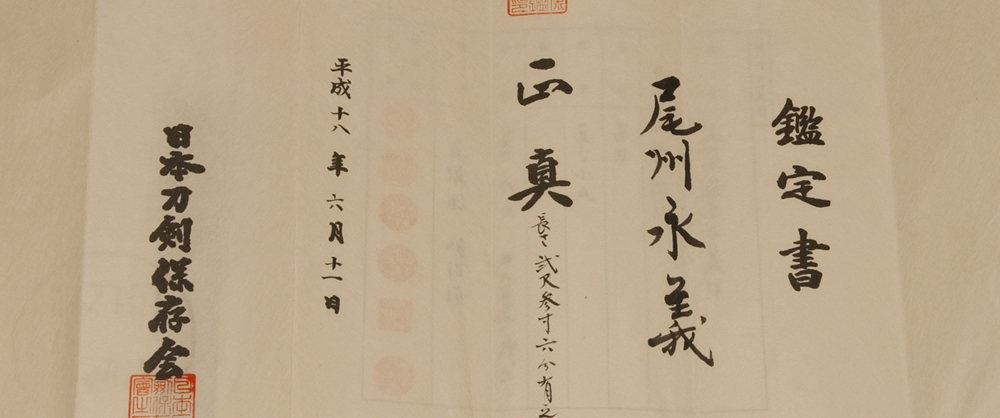 鑑定書
尾州永義
正真
長さ弐尺参寸六分有之
平成十八年六月十一日
日本刀剣保存会